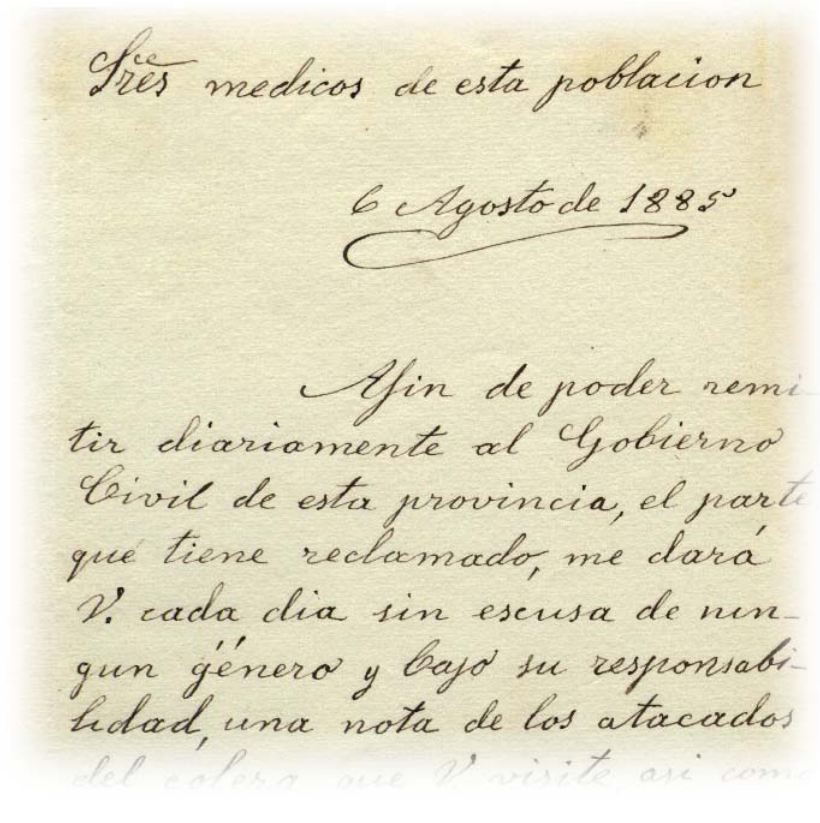 Sres medicos de esta poblacion
6 Agosto de 1885
Afin de poder remi-
tir diariamente al Gobierno
Civil de esta provincia, el parte
que tiene reclamado, me dará
V. cada dia sin escusa de nin-
gun género y bajo su responsabi-
lidad, una nota de los atacados
del colera que V. visite, asi como